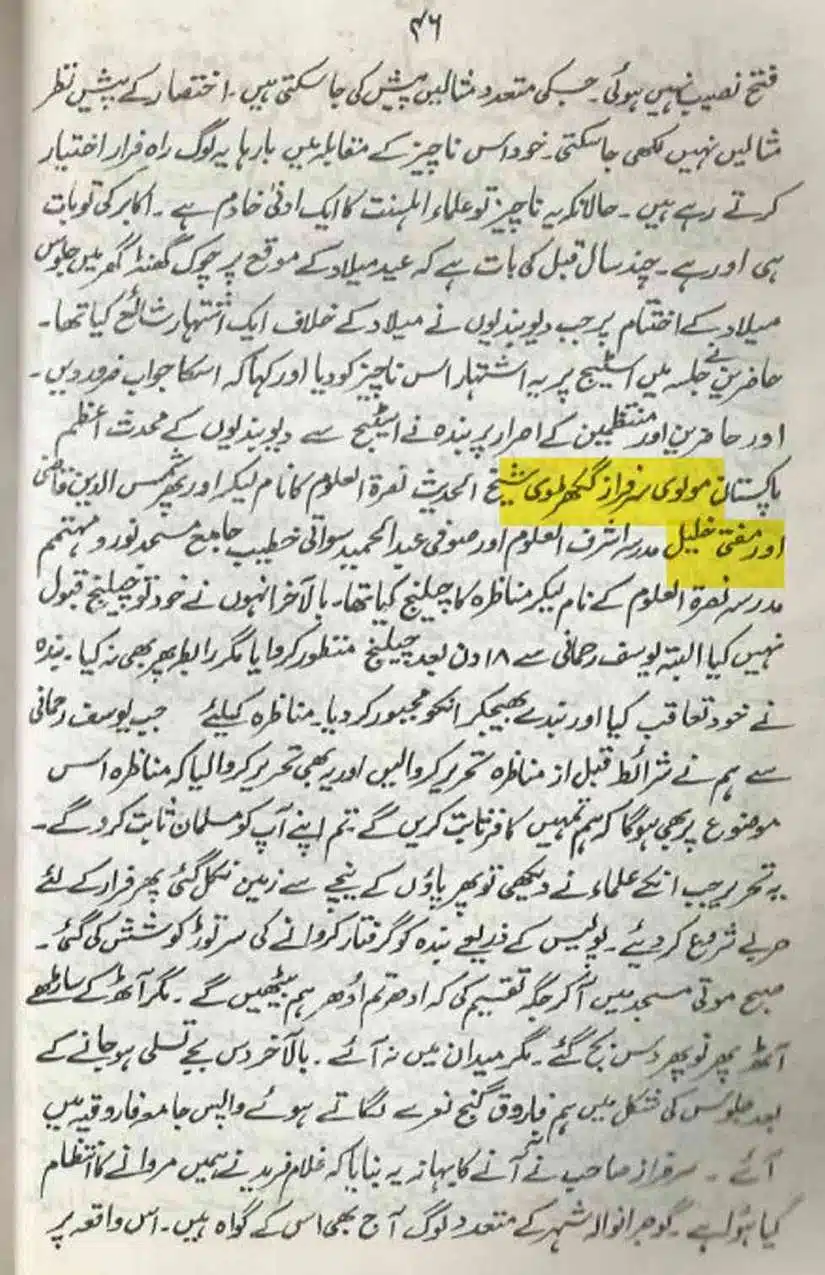 ۴۶
فتح نصیب نہیں ہوئی۔ جسکی متعدد مثالیں پیش کی جا سکتی ہیں۔ اختصار کے پیش نظر
مثالیں نہیں لکھی جا سکتی۔ خود اس ناچیز کے مقابلہ میں بارہا یہ لوگ راہ فرار اختیار
کرتے رہے ہیں۔ حالانکہ یہ ناچیز تو علماء اہلسنت کا ایک ادنیٰ خادم ہے۔ اکابر کی تو بات
ہی اور ہے۔ چند سال قبل کی بات ہے کہ عید میلاد کے موقع پر چوک گھنٹہ گھر میں جلوس
میلاد کے اختتام پر جب دیوبندیوں نے میلاد کے خلاف ایک اشتہار شائع کیا تھا۔
حاضرین نے جلسہ میں اسٹیج پر یہ اشتہار اس ناچیز کو دیا اور کہا کہ اسکا جواب ضرور دیں۔
اور حاضرین اور منتظمین کے اصرار پر بندہ نے اسٹیج سے دیوبندیوں کے محدث اعظم
پاکستان مولوی سرفراز گکھڑوی شیخ الحدیث نصرۃ العلوم کا نام لیکر اور پھر شمس الدین قاضی
اور مفتی خلیل مدرسہ اشرف العلوم اور صوفی عبدالحمید سواتی خطیب جامع مسجد نور و مہتمم
مدرسہ نصرۃ العلوم کے نام لیکر مناظرہ کا چیلنج کیا تھا۔ بالآخر انہوں نے خود تو چیلنج قبول
نہیں کیا البتہ یوسف رحمانی سے ۱۸ دن بعد چیلنج منظور کروایا مگر رابطہ پھر بھی نہ کیا۔ بندہ
نے خود تعاقب کیا اور بندے بھیجکر انکو مجبور کر دیا۔ مناظرہ کیلئے جب یوسف رحمانی
سے ہم نے شرائط قبل از مناظرہ تحریر کروالیں اور یہ بھی تحریر کروالیا کہ مناظرہ اس
موضوع پر بھی ہو گا کہ ہم تمہیں کافر ثابت کریں گے۔ تم اپنے آپ کو مسلمان ثابت کرو گے۔
یہ تحریر جب انکے علماء نے دیکھی تو پھر پاؤں کے نیچے سے زمین نکل گئی پھر فرار کے لئے
حربے شروع کر دیئے۔ پولیس کے ذریعے بندہ کو گرفتار کروانے کی سر توڑ کوشش کی گئی۔
صبح موتی مسجد میں آ کر جگہ تقسیم کی کہ ادھر تم اُدھر ہم بیٹھیں گے۔ مگر آٹھ کے ساڑھے
آٹھ پھر نو پھر دس بج گئے۔ مگر میدان میں نہ آئے۔ بالآخر دس بجے تسلی ہو جانے کے
بعد جلوس کی شکل میں ہم فاروق گنج نعرے لگاتے ہوئے واپس جامعہ فاروقیہ میں
آئے۔ سرفراز صاحب نے نہ آنے کا بہانہ یہ بنایا کہ غلام فرید نے ہمیں مروانے کا انتظام
کیا ہوا ہے۔ گوجرانوالہ شہر کے متعدد لوگ آج بھی اس کے گواہ ہیں۔ اس واقعہ پر